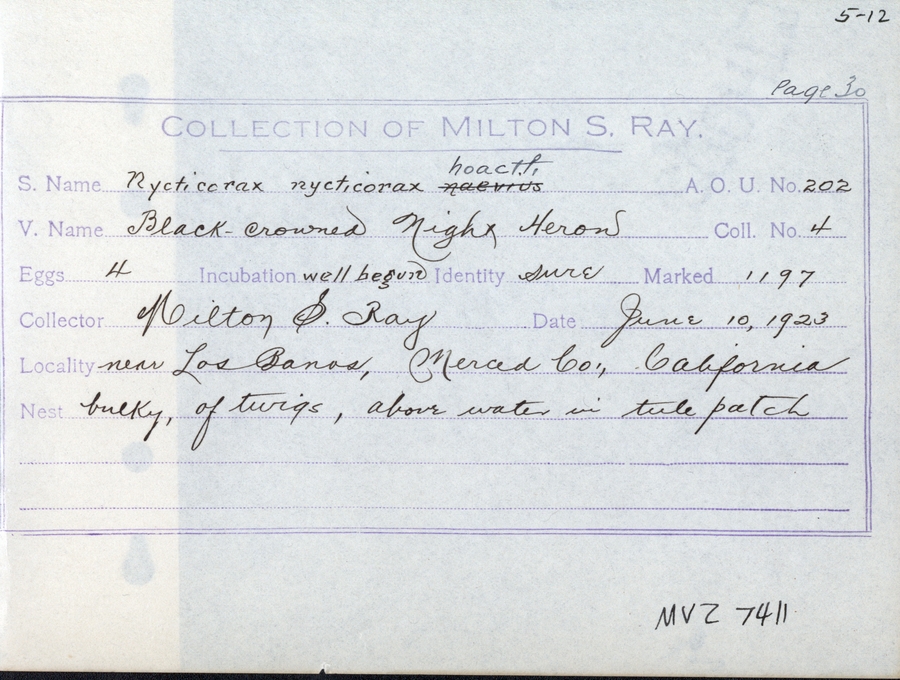 5-12
Page 30
COLLECTION OF MILTON S. RAY.
hoactli
S. Name Nycticorax nycticorax naevius A. O. U. No. 202
V. Name Black-crowned Night Heron Coll. No. 4
Eggs 4 Incubation well begun Identity sure Marked 1197
Collector Milton S. Ray Date June 10, 1923
Locality near Los Banos, Merced Co., California
Nest bulky, of twigs, above water in tule patch
MVZ 7411